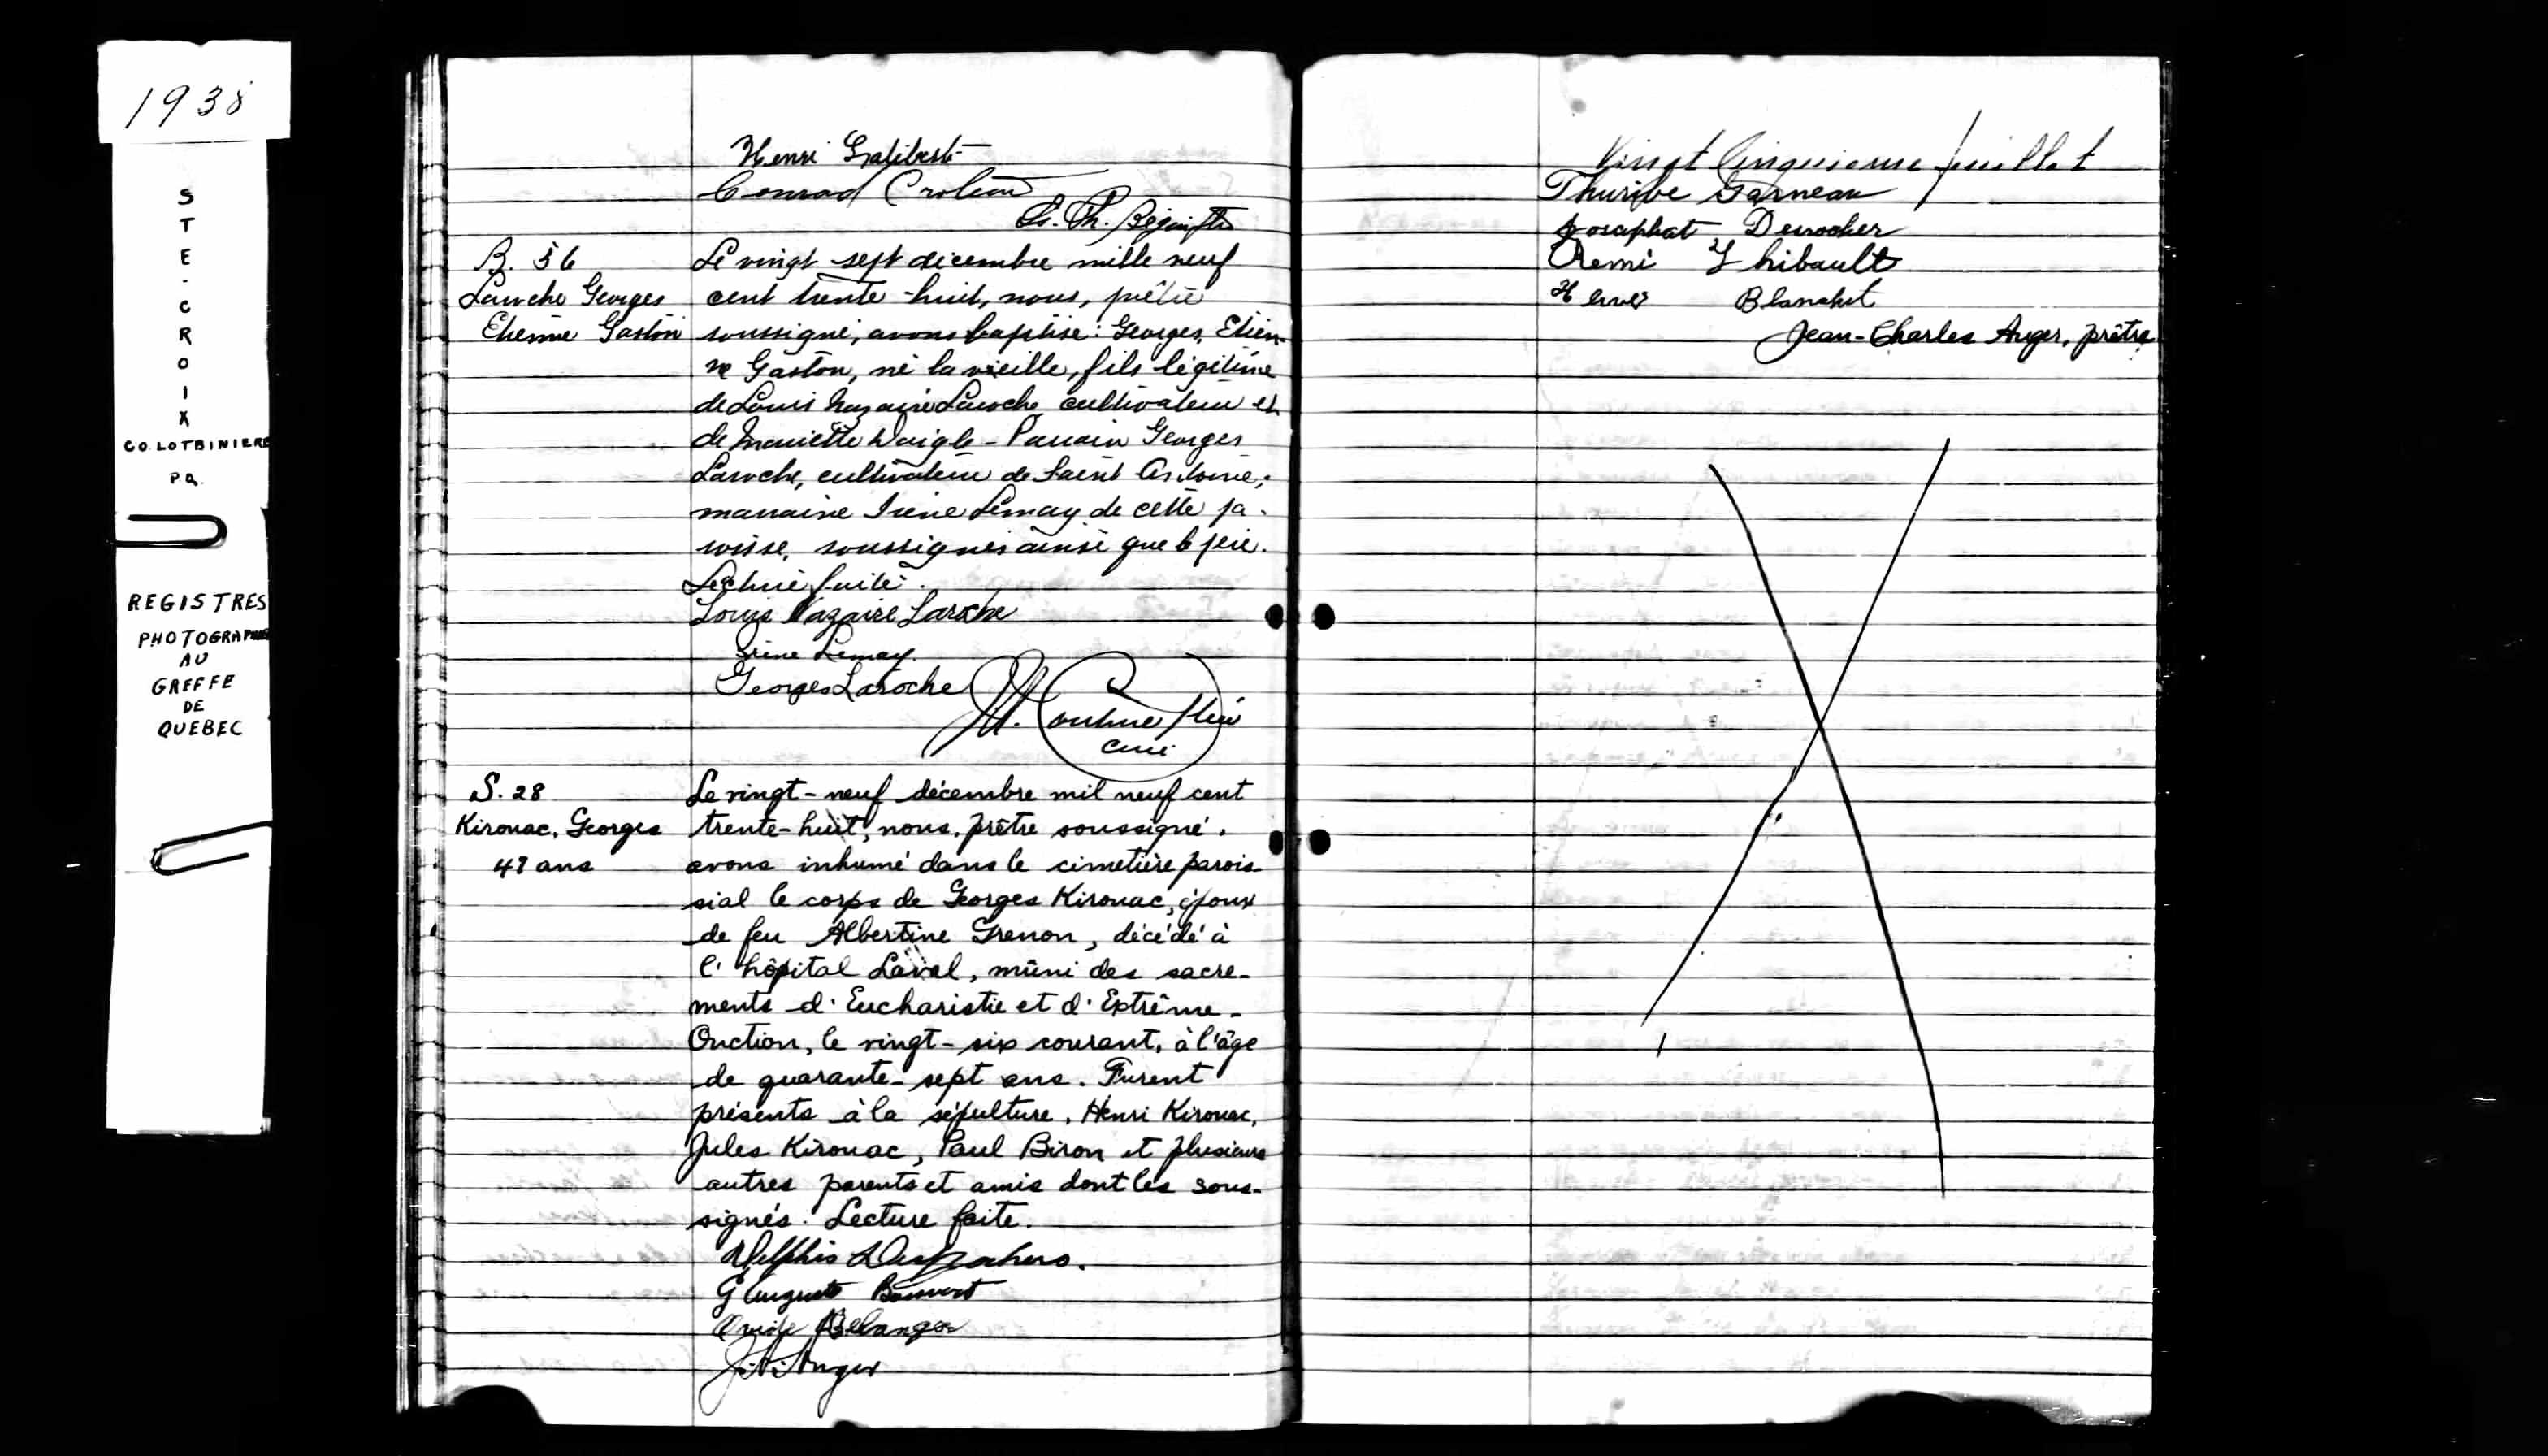 1938
STE-CROIX
CO. LOTBINIERE
P.Q.
REGISTRES
PHOTOGRAPHIE
AU
GREFFE
DE
QUEBEC
Henri
Conrad Croteau
B. 56
Laroche Georges
Etienne Gaston
Le vingt sept décembre mille neuf
cent trente-huit, nous, prêtre
soussigné, avons baptisé: Georges, Etien-
ne Gaston, né la vieille, fils légitime
de Louis Nazaire Laroche cultivateur et
de Mariette Daigle - Parrain Georges
Laroche, cultivateur de Saint Antoine;
marraine Irène Lemay de cette pa-
roisse, soussignés ainsi que le père.
Lecture faite.
Louis Nazaire Laroche
Irène Lemay
Georges Laroche
curé
S. 28
Kirouac, Georges
47 ans
Le vingt-neuf décembre mil neuf cent
trente-huit, nous, prêtre soussigné,
avons inhumé dans le cimetière parois-
sial le corps de Georges Kirouac, époux
de feu Albertine Grenon, décédé à
l'hôpital Laval, muni des sacre-
ments d'Eucharistie et d'Extrême-
Onction, le vingt-six courant, à l'âge
de quarante-sept ans. Furent
présents à la sépulture, Henri Kirouac,
Jules Kirouac, Paul Biron et plusieurs
autres parents et amis dont les sous-
signés. Lecture faite.
Delphis Desrochers.
G Auguste Boisvert
Ovide Bélanger
Auger
Vingt Cinquieme feuillet
Thuribe Garneau
Josaphat Desrocher
Remi Thibault
Hervé Blanchet
Jean-Charles Auger, prêtre